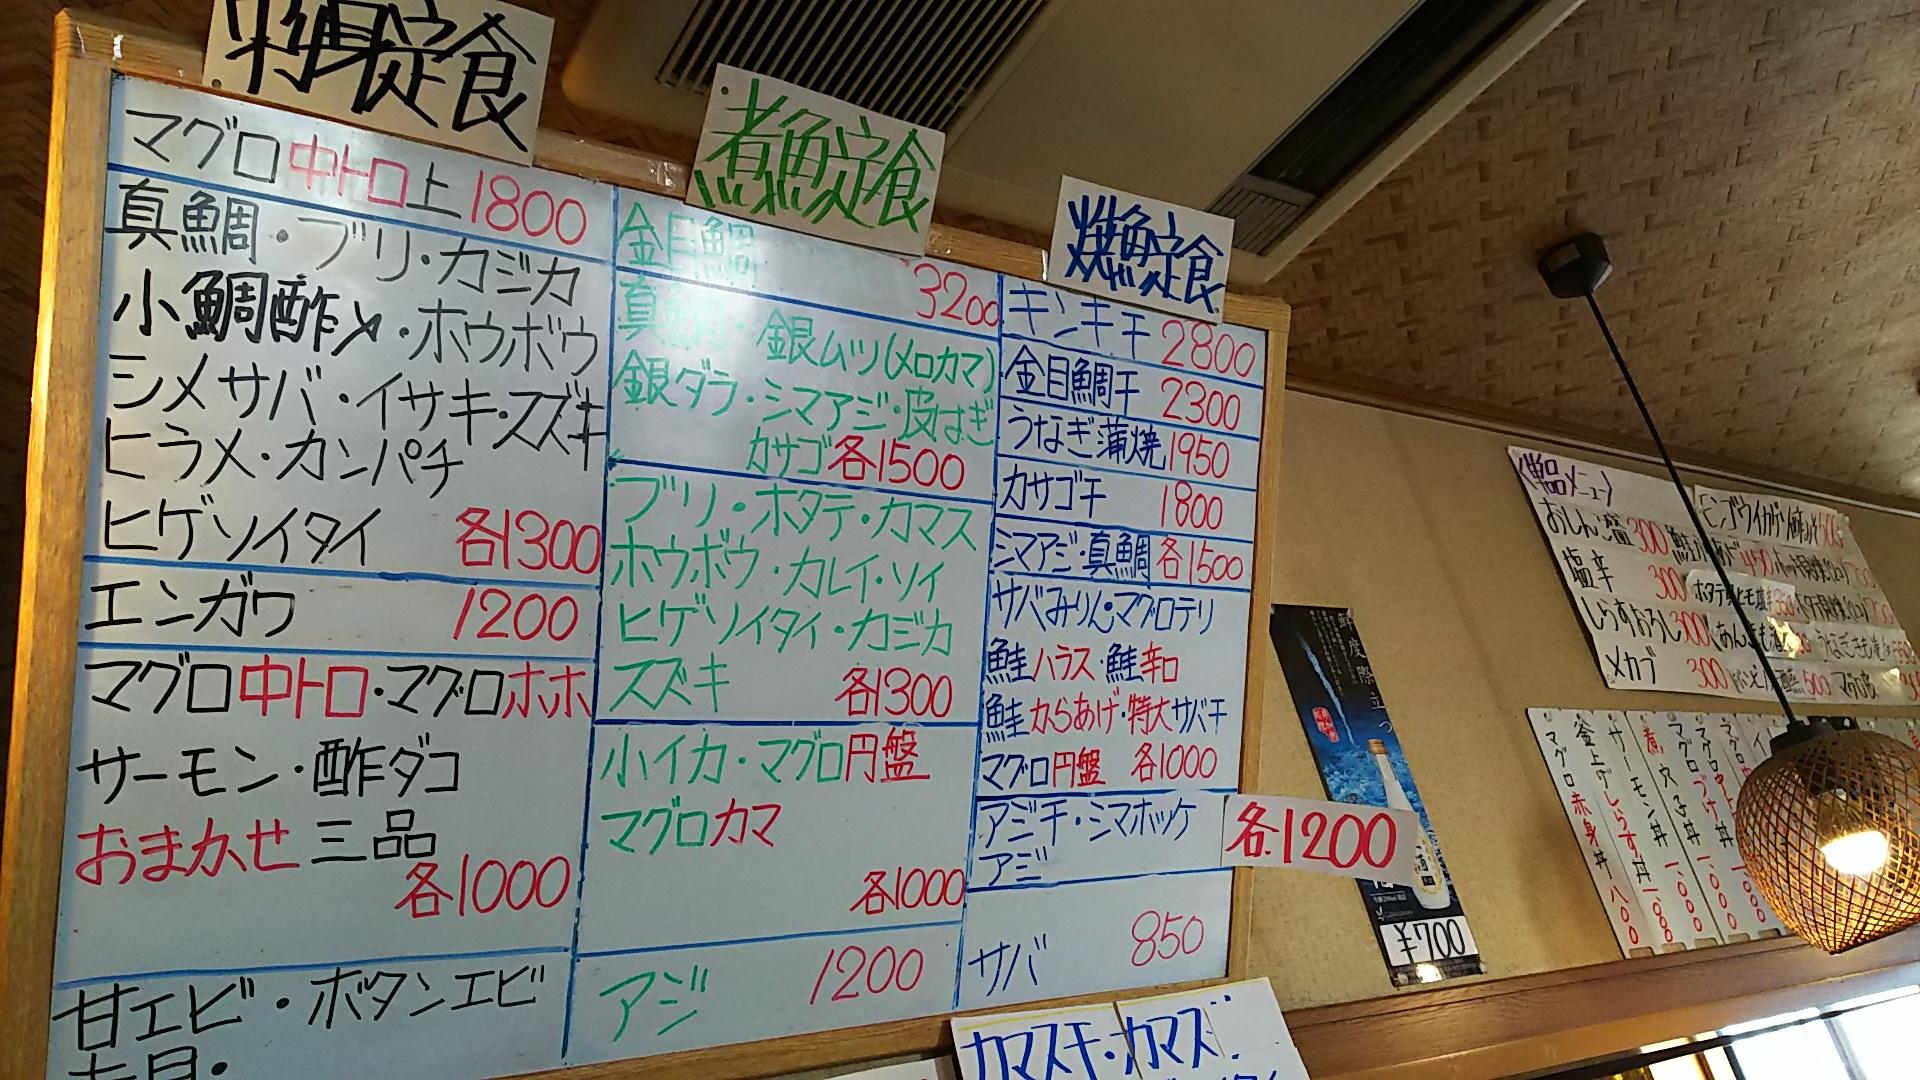 刺身定食
マグロ中トロ上1800
真鯛・ブリ・カジカ
小鯛酢〆・ホウボウ
シメサバ・イサキ・スズキ
ヒラメ・カンパチ
ヒゲソイタイ 各1300
エンガワ 1200
マグロ中トロ・マグロホホ
サーモン・酢ダコ
おまかせ三品
各1000
甘エビ・ボタンエビ
煮魚定食
金目鯛
3200
真鯛・銀ムツ(メロカマ)
銀ダラ・シマアジ・皮はぎ
カサゴ各1500
ブリ・ホタテ・カマス
ホウボウ・カレイ・ソイ
ヒゲソイタイ・カジカ
スズキ 各1300
小イカ・マグロ円盤
マグロカマ
各1000
アジ 1200
焼魚定食
キンキ干 2800
金目鯛干 2300
うなぎ蒲焼1950
カサゴ干 1800
シマアジ・真鯛各1500
サバみりん・マグロテリ
鮭ハラス・鮭辛口
鮭からあげ・特大サバ干
マグロ円盤 各1000
アジ干・シマホッケ
アジ
各1200
サバ 850
カマス干・カマス
鮮度際立つ
¥700
単品メニュー
おしんこ盛300
塩辛 300
しらすおろし300
メカブ 300
マグロ赤身丼 八〇〇
釜上げしらす丼
サーモン丼
煮穴子丼 一、〇〇〇
マグロづけ丼 一、〇〇〇